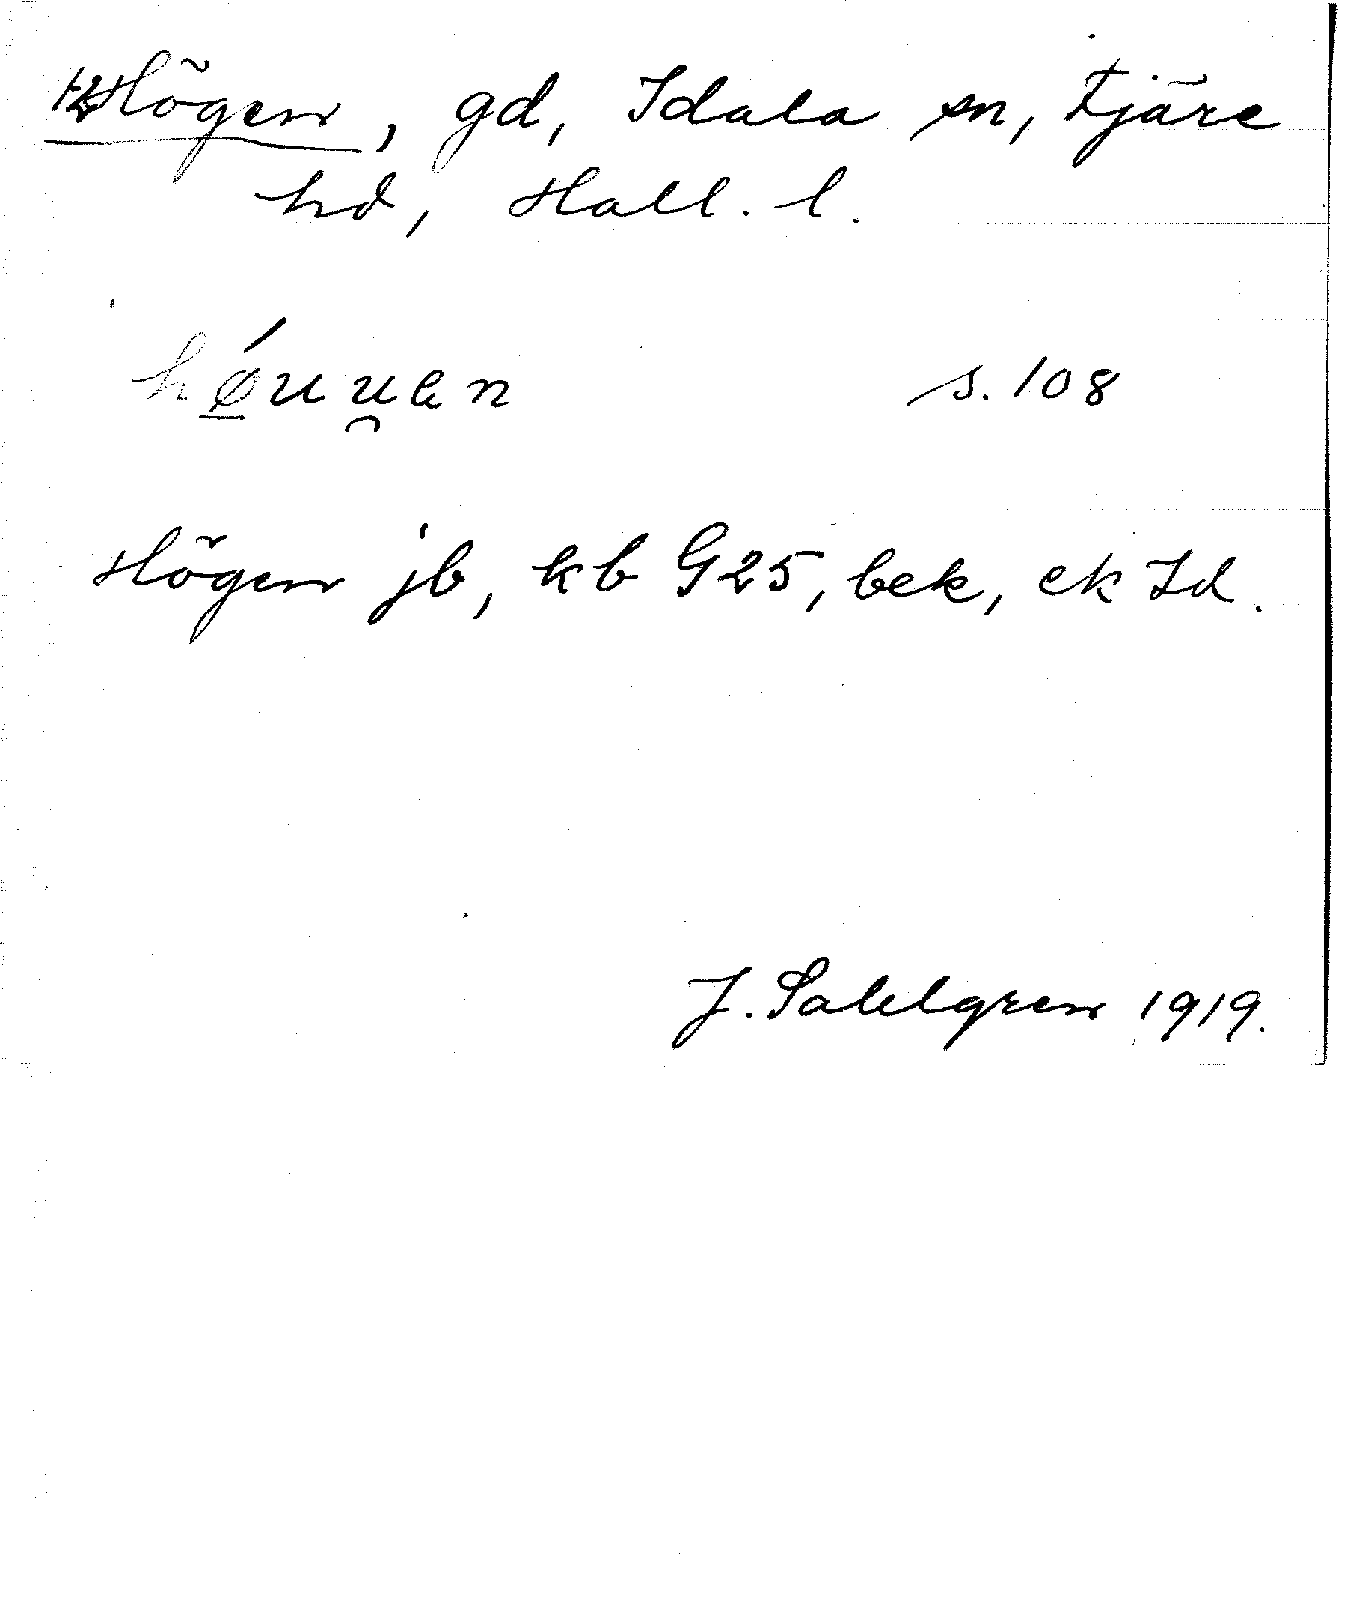 12 Högen, gd, Idala sn, Fjäre
hd, Hall. l.
hǿuu̯en s. 108
Högen jb, kb G25, bek, ek Id.
J. Sahlgren 1919.